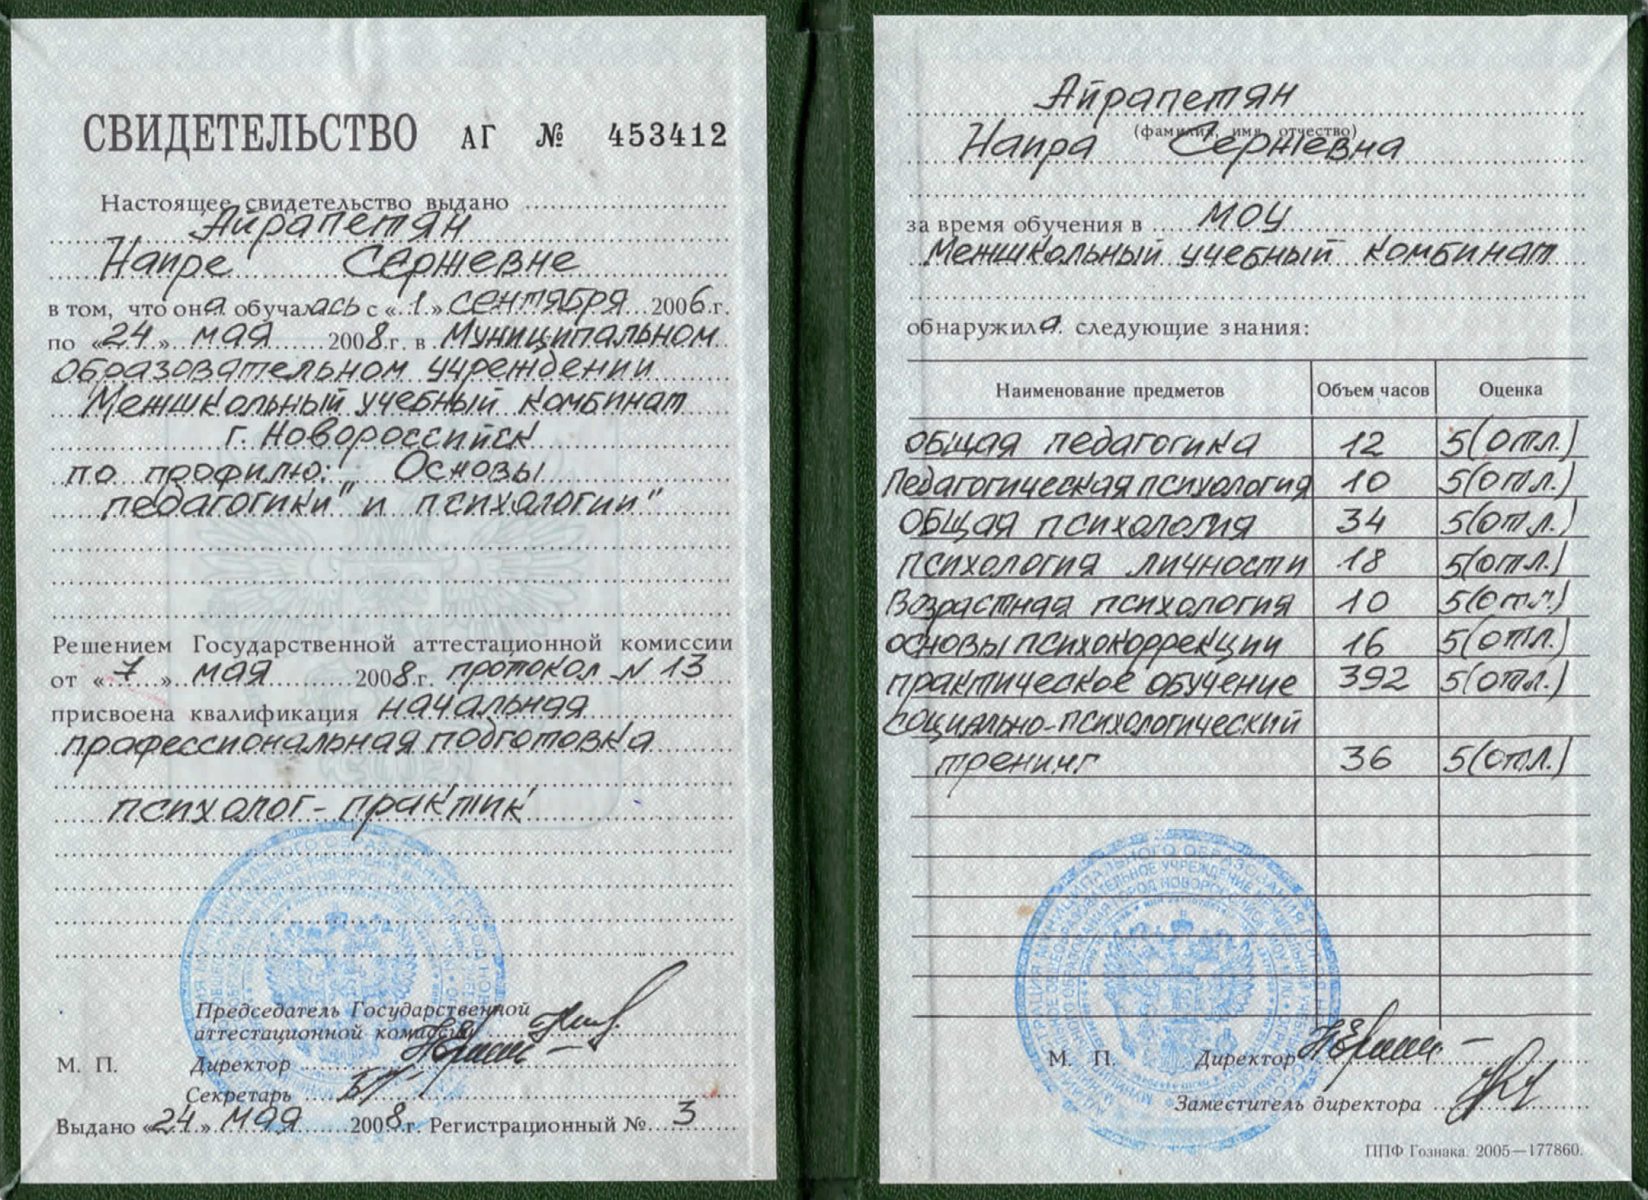 СВИДЕТЕЛЬСТВО АГ № 453412
Настоящее свидетельство выдано
Айрапетян
Наире Сержевне
в том, что она обучалась с «1» сентября 2006 г.
по «24» мая 2008 г. в Муниципальном
образовательном учреждении
Межшкольный учебный комбинат
г. Новороссийск
по профилю: Основы
педагогики" и психологии"
Решением Государственной аттестационной комиссии
от «7» мая 2008 г. протокол N 13
присвоена квалификация начальная
профессиональная подготовка
психолог-практик
Председатель Государственной
аттестационной комиссии
М. П. Директор
Секретарь
Выдано «24» мая 2008 г. Регистрационный № 3
Айрапетян
(фамилия, имя, отчество)
Наира Сержевна
за время обучения в МОУ
Межшкольный учебный комбинат
обнаружила следующие знания:
Наименование предметов Объем часов Оценка
общая педагогика 12 5(отл.)
Педагогическая психология 10 5(отл.)
общая психология 34 5(отл.)
психология личности 18 5(отл.)
Возрастная психология 10 5(отл.)
основы психокоррекции 16 5(отл.)
практическое обучение 392 5(отл.)
социально-психологический
тренинг 36 5(отл.)
М. П. Директор
Заместитель директора
ППФ Гознака. 2005—177860.